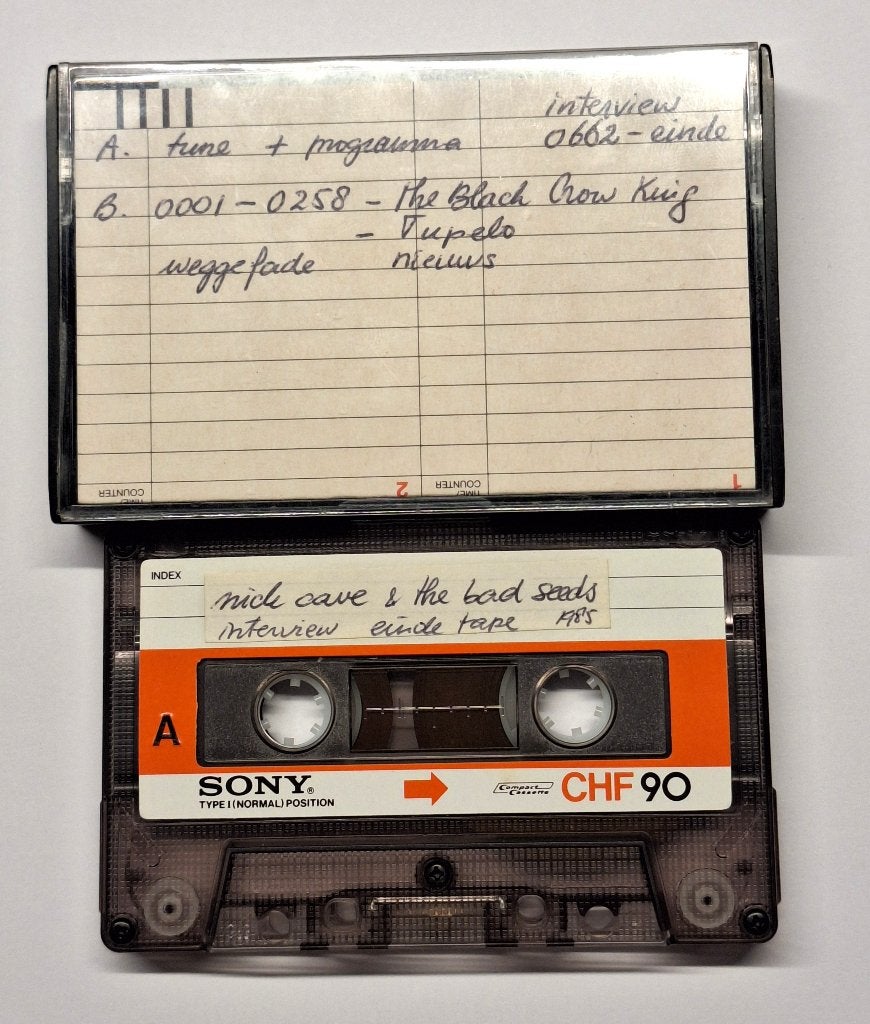 interview
A. tune + programma 0662 - einde
B. 0001 - 0258 - The Black Crow King
- Tupelo
weggefade nieuws
TIME/
COUNTER
2
TIME/
COUNTER
1
INDEX
nick cave & the bad seeds
interview einde tape 1985
A
SONY®
TYPE I (NORMAL) POSITION
Compact
Cassette
CHF 90